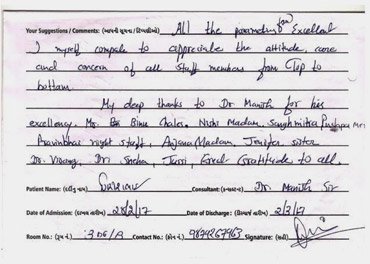 Your Suggestions / Comments: (આપની સૂચના / ટિપ્પણીઓ) All the parameters are Excellent
I myself compels to appreciate the attitude, care
and concern of all staff members from Top to
bottom.
My deep thanks to Dr Manish for his
excellency. Mr. Binu Chako. Nishi Madam, Sanghmitra Pushpa
Pravinbhai night staff, Anjana Madam, Jenifer sister
Dr. Virang, Dr. Sneha, Great Gratitude to all.
Patient Name: (દર્દીનું નામ) Consultant: Dr. Manish Sir
Date of Admission: 28/2/17 Date of Discharge: 2/3/17
Room No.: 306/A Contact No.: 9879267963 Signature: (સહી)